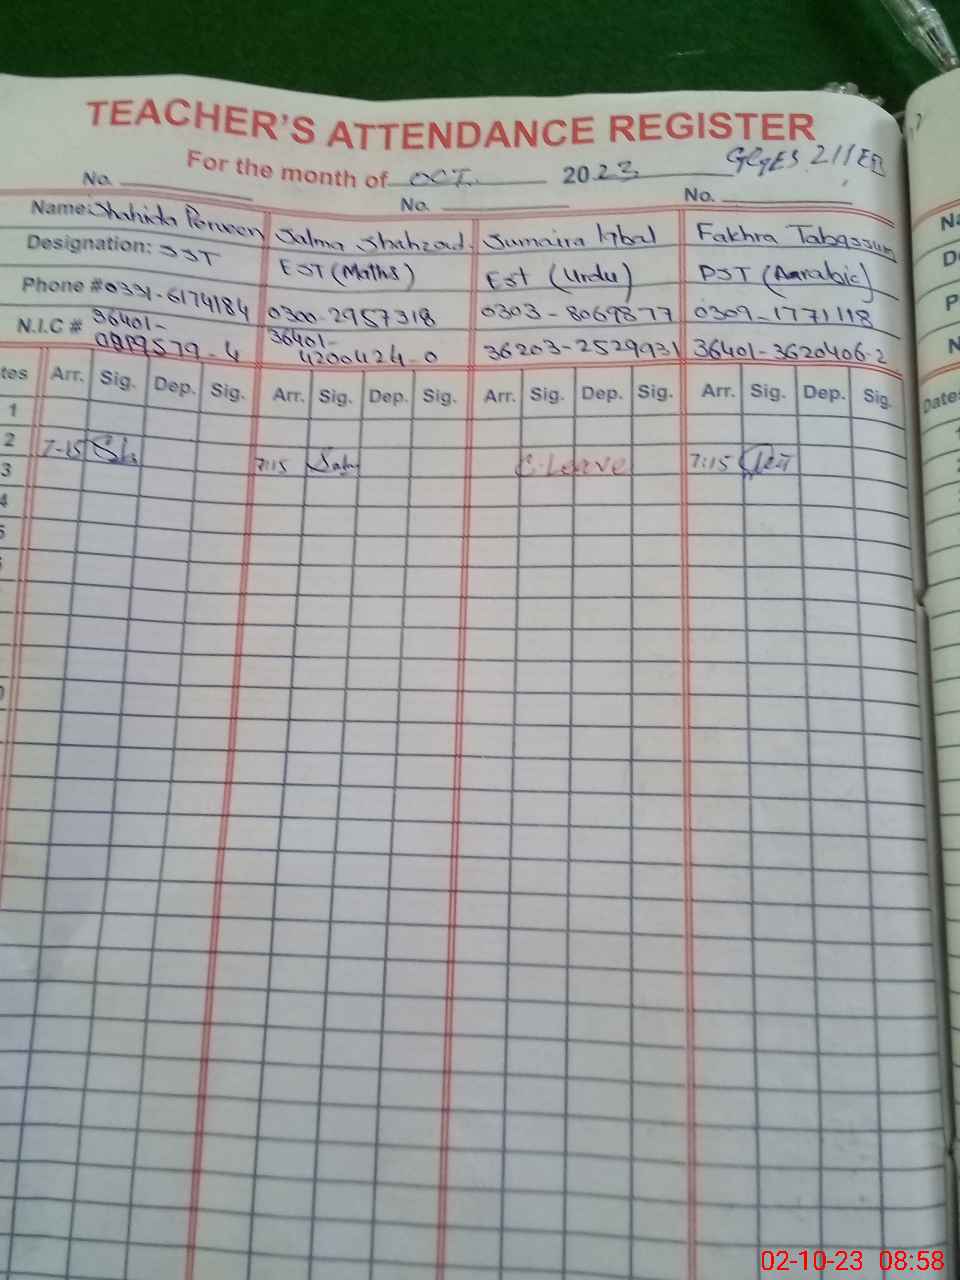 TEACHER'S ATTENDANCE REGISTER
For the month of OCT. 2023 GGES 211 EB
No. No. No.
Name: Shahida Perveen Salma Shahzad. Sumaira Iqbal Fakhra Tabassum
Designation: SST EST (Maths) Est (Urdu) PST (Aarabic)
Phone # 0331-6174184 0300-2957318 0303-8069877 0309-1771118
N.I.C # 36401- 36401- 36203-2529931 36401-3620406-2
4200424-0
tes Arr. Sig. Dep. Sig. Arr. Sig. Dep. Sig. Arr. Sig. Dep. Sig. Arr. Sig. Dep. Sig. Dates
1
2 7-15 7:15 C-Leave 7:15
3
4
5
02-10-23 08:58